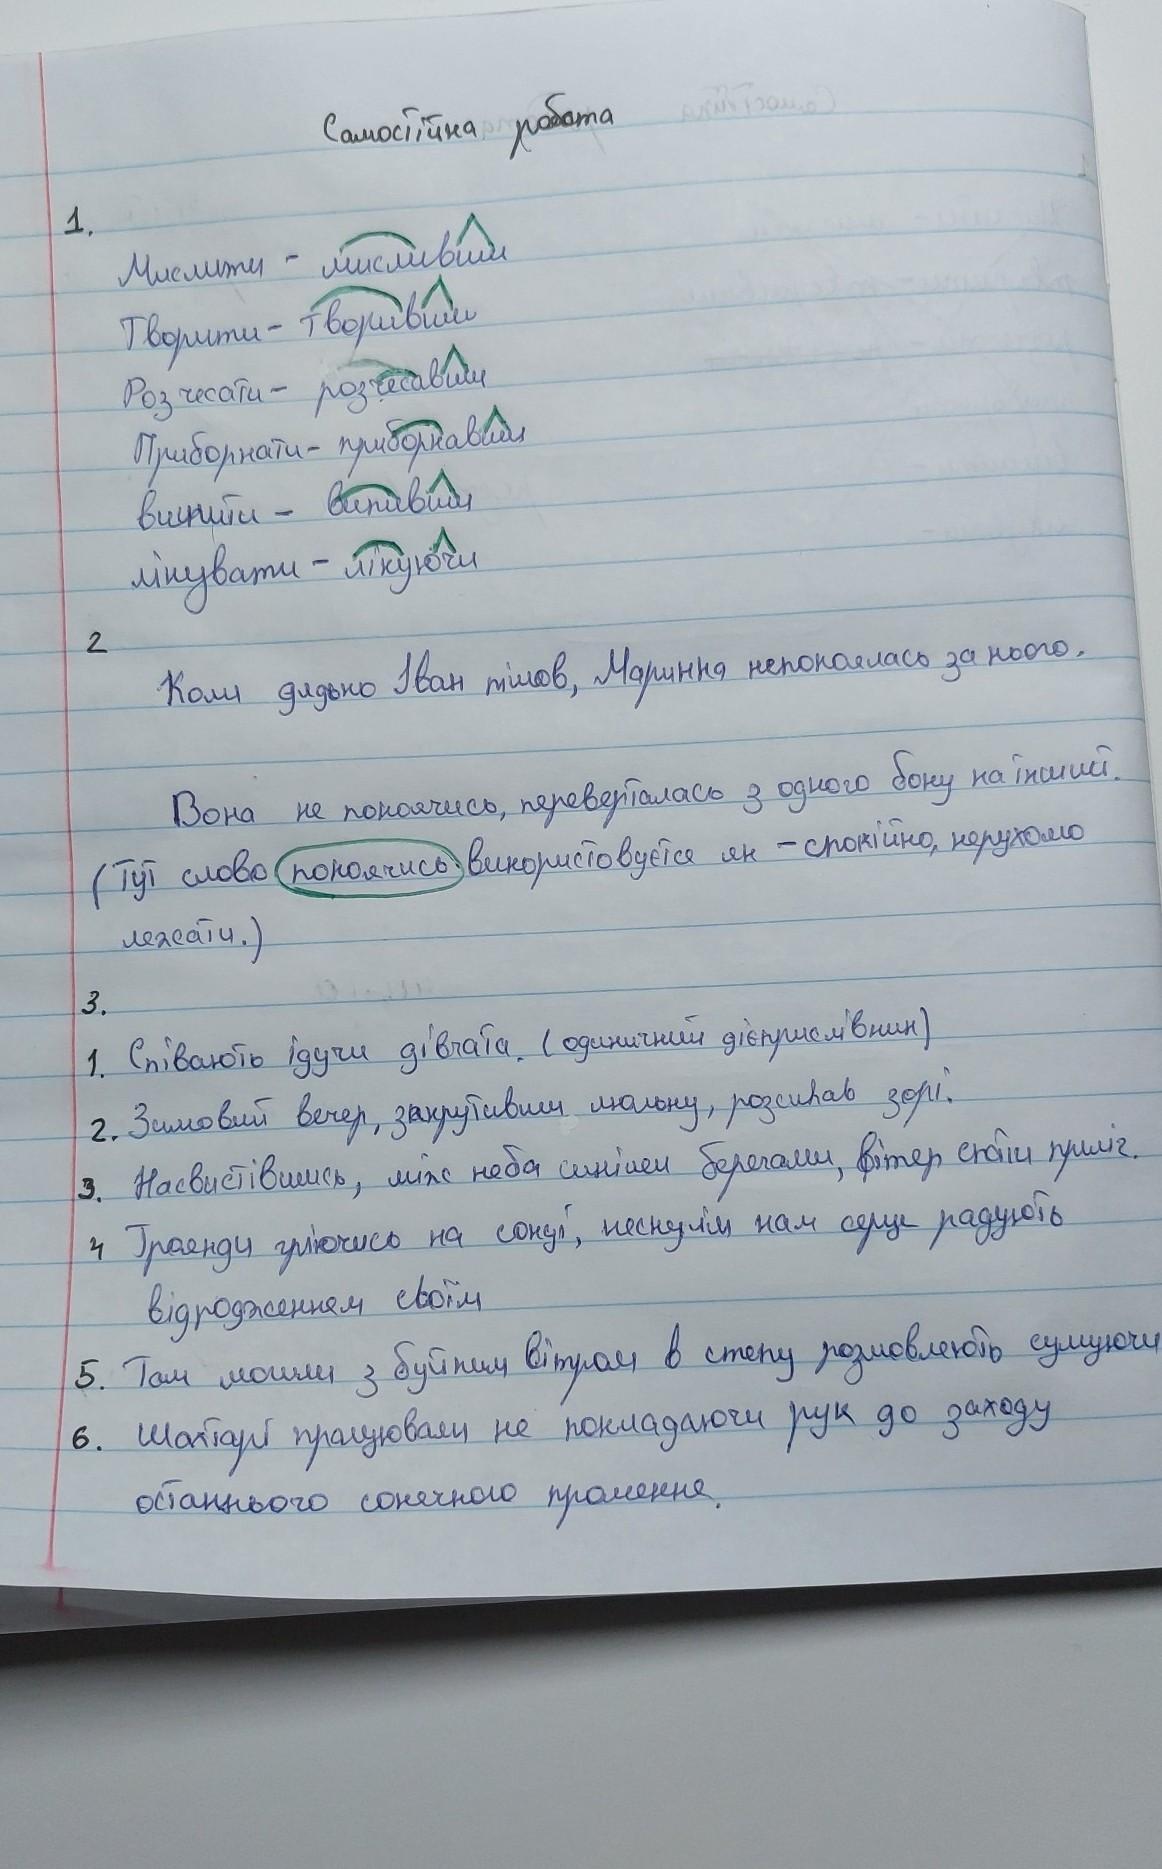 Самостійна робота
1.
Мислити - мисливши
Творити - творивши
Розчесати - розчесавши
Приборкати - приборкавши
випити - випивши
лікувати - лікуючи
2
Коли дядько Іван пішов, Маринка непокоялась за нього.
Вона не покоячись, перевертіалась з одного боку на інший.
(Тут слово покоячись використовується як - спокійно, нерухомо
лежати.)
3.
1. Співають ідучи дівчата. (одиничний дієприслівник)
2. Зимовий вечер, закрутивши люльку, розсипав зорі.
3. Насвистівшись, між неба синіми берегами, вітер спати приліг.
4 Троянди гріючись на сонці, несхили нам серце радують
відродженнем своїм
5. Там могили з буйним вітром в степу розмовлють сумуючи
6. Шахтарі працювали не покладаючи рук до заходу
останнього сонячного промення.